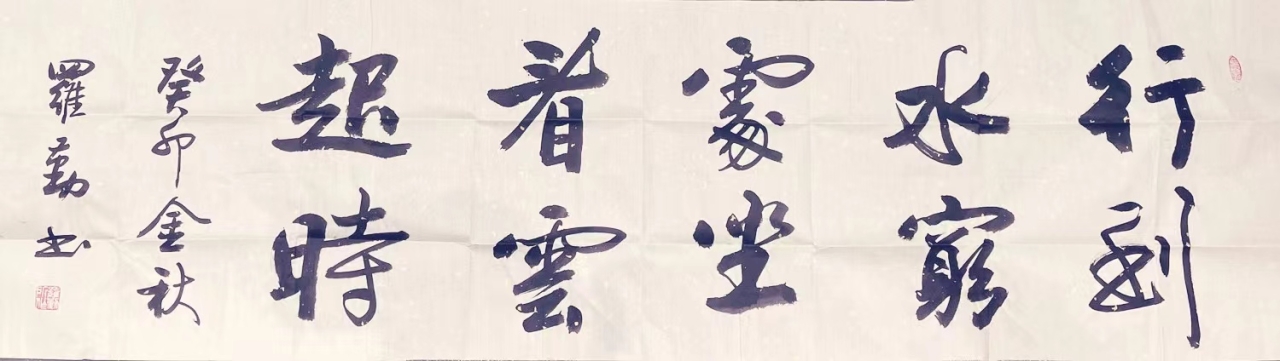 行到
水窮
處坐
看雲
起時
癸卯金秋
羅勤书